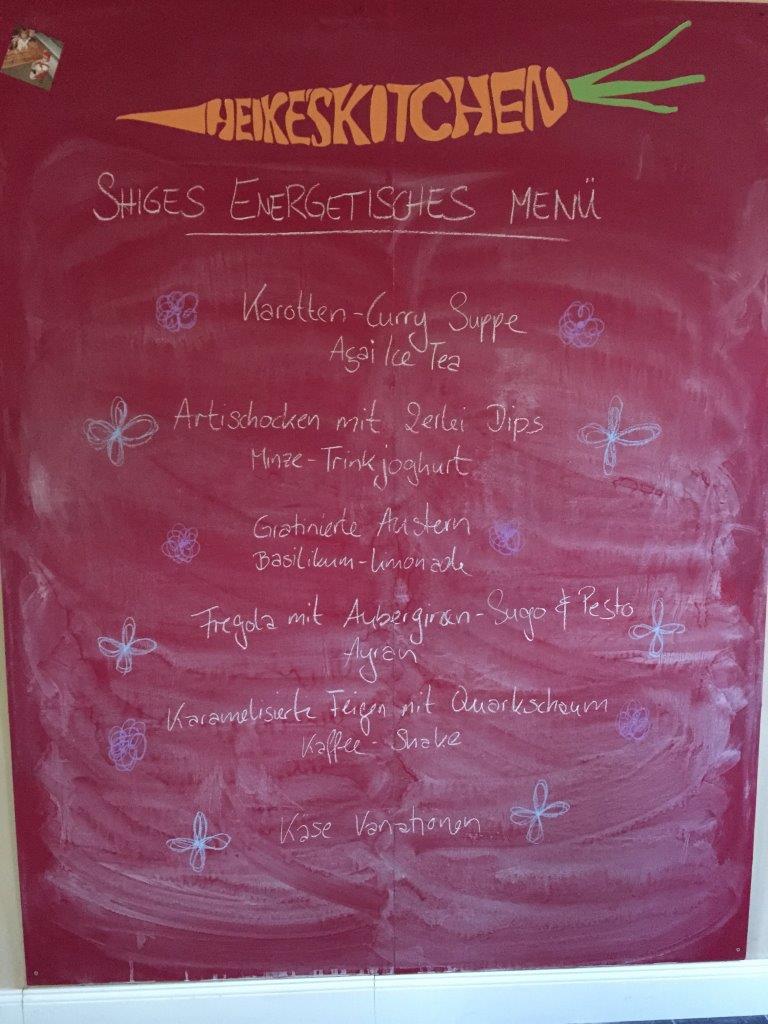 HEIKE'SKITCHEN
SHIGES ENERGETISCHES MENÜ
Karotten-Curry Suppe
Açai Ice Tea
Artischocken mit 2erlei Dips
Minze-Trinkjoghurt
Gratinierte Austern
Basilikum-Limonade
Fregola mit Auberginen-Sugo & Pesto
Ayran
Karamelisierte Feigen mit Quarkschaum
Kaffee-Shake
Käse Variationen